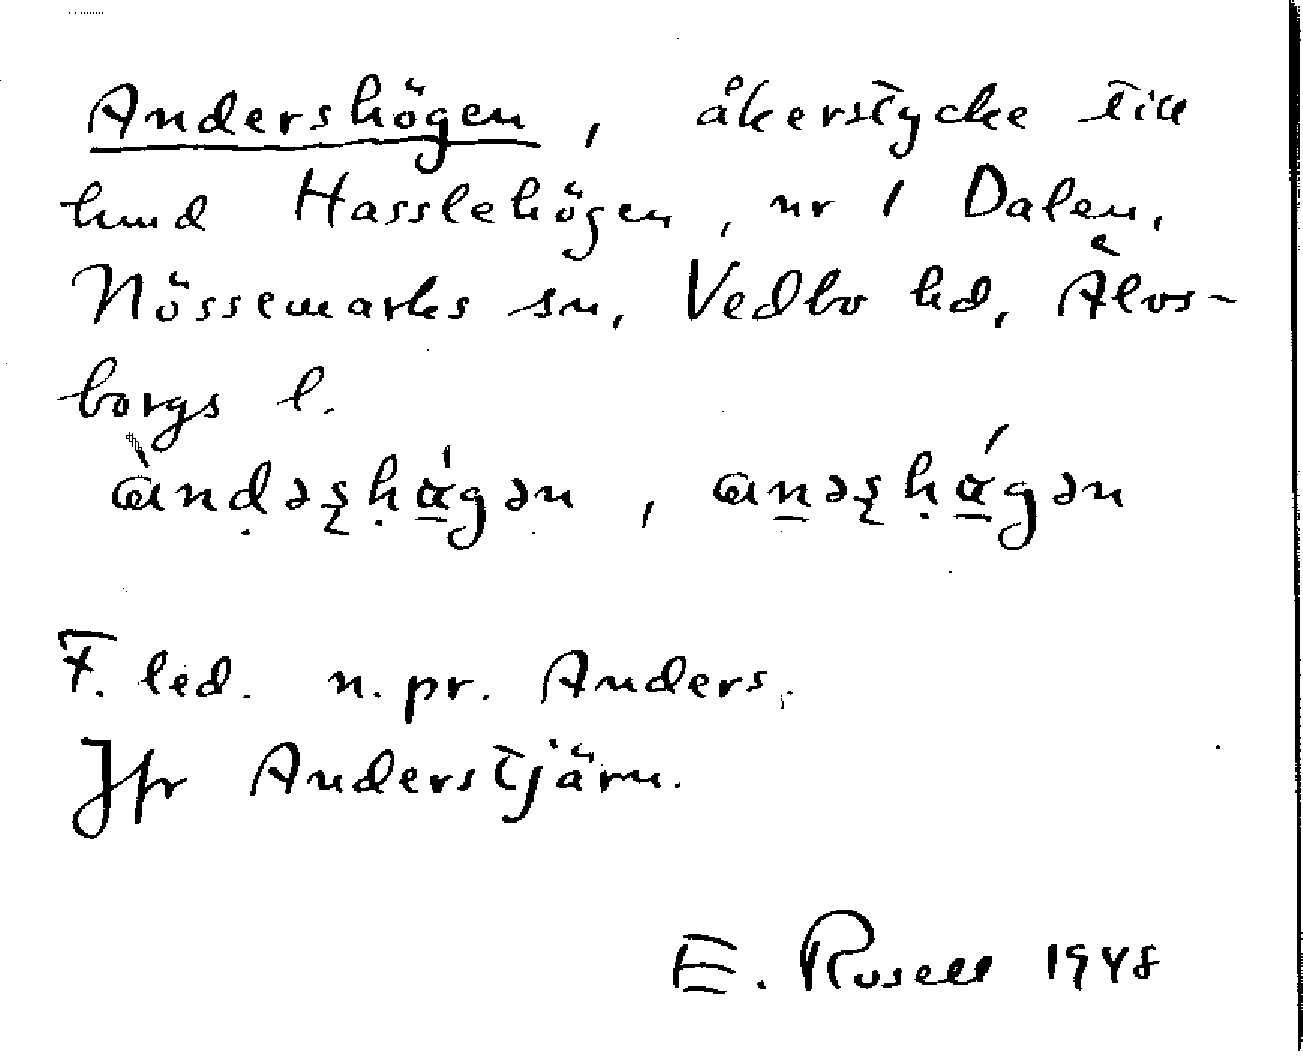 Andershögen, åkerstycke till
lund Hasslehögen, nr 1 Dalen,
Nössemarks sn, Vedbo hd, Älvs-
borgs l.
F. led. n. pr. Anders.
Jfr Anderstjärn.
E. Rosell 1948